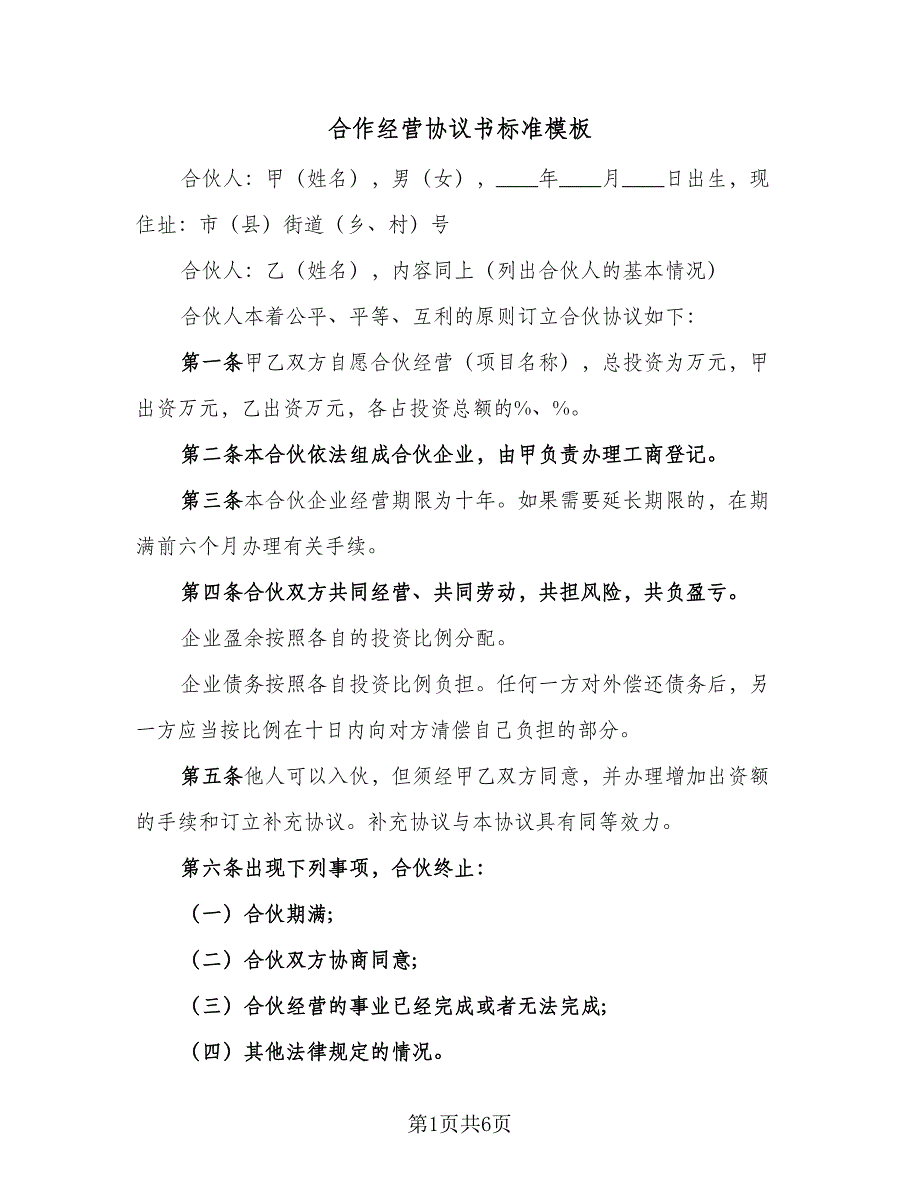 合作经营协议书标准模板
合伙人：甲（姓名），男（女），____年____月____日出生，现
住址：市（县）街道（乡、村）号
合伙人：乙（姓名），内容同上（列出合伙人的基本情况）
合伙人本着公平、平等、互利的原则订立合伙协议如下：
第一条甲乙双方自愿合伙经营（项目名称），总投资为万元，甲
出资万元，乙出资万元，各占投资总额的%、%。
第二条本合伙依法组成合伙企业，由甲负责办理工商登记。
第三条本合伙企业经营期限为十年。如果需要延长期限的，在期
满前六个月办理有关手续。
第四条合伙双方共同经营、共同劳动，共担风险，共负盈亏。
企业盈余按照各自的投资比例分配。
企业债务按照各自投资比例负担。任何一方对外偿还债务后，另
一方应当按比例在十日内向对方清偿自己负担的部分。
第五条他人可以入伙，但须经甲乙双方同意，并办理增加出资额
的手续和订立补充协议。补充协议与本协议具有同等效力。
第六条出现下列事项，合伙终止：
（一）合伙期满;
（二）合伙双方协商同意;
（三）合伙经营的事业已经完成或者无法完成;
（四）其他法律规定的情况。
第1页共6页